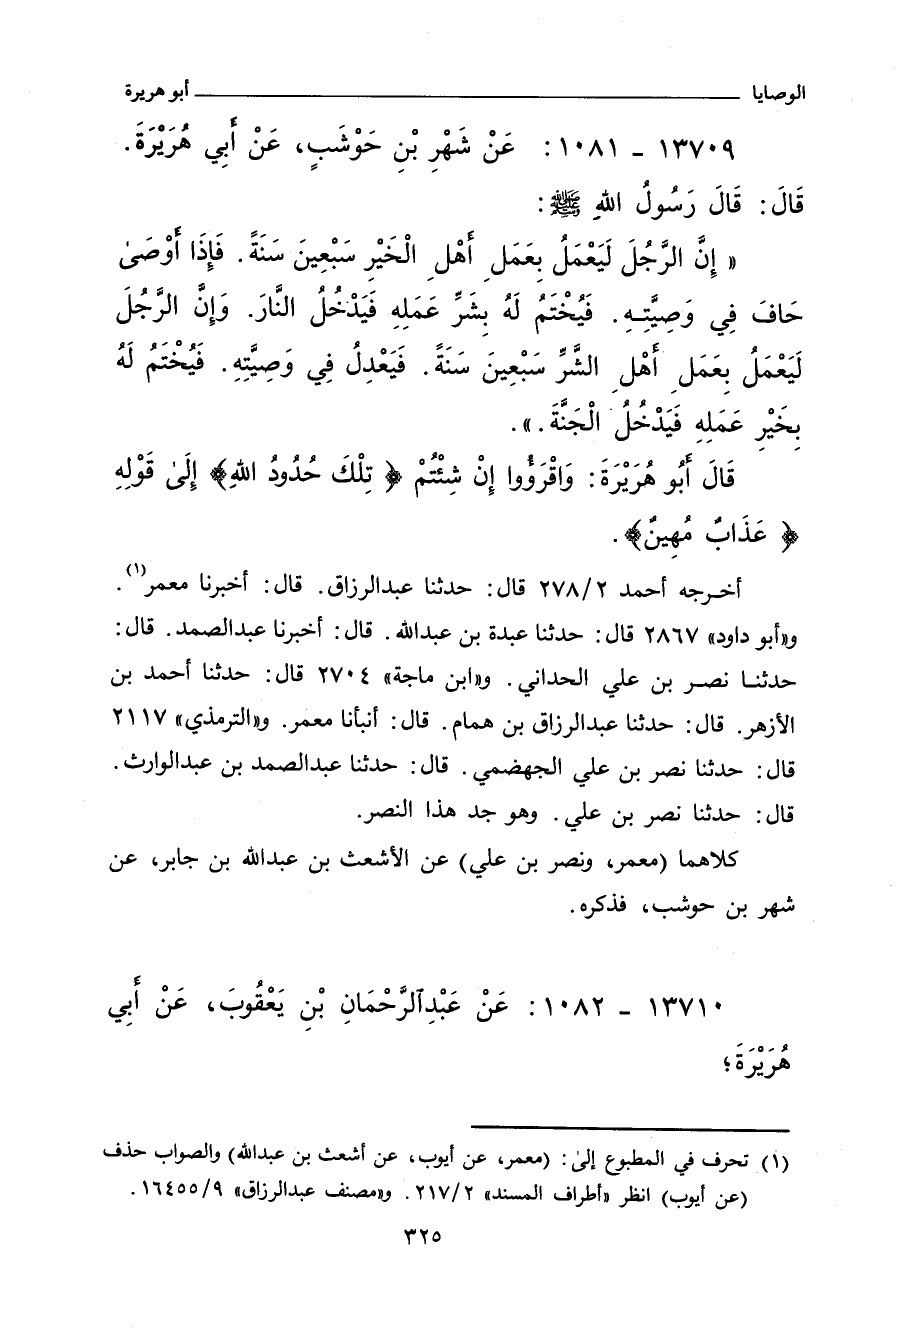 الوصايا ـــــــــــــــــ أبو هريرة
١٣٧٠٩ ـ ١٠٨١ : عَنْ شَهْرِ بْنِ حَوْشَبٍ، عَنْ أَبِي هُرَيْرَةَ.
قَالَ: قَالَ رَسُولُ اللهِ ﷺ:
« إِنَّ الرَّجُلَ لَيَعْمَلُ بِعَمَلِ أَهْلِ الْخَيْرِ سَبْعِينَ سَنَةً. فَإِذَا أَوْصَىٰ
حَافَ فِي وَصِيَّتِهِ. فَيُخْتَمُ لَهُ بِشَرِّ عَمَلِهِ فَيَدْخُلُ النَّارَ. وَإِنَّ الرَّجُلَ
لَيَعْمَلُ بِعَمَلِ أَهْلِ الشَّرِّ سَبْعِينَ سَنَةً. فَيَعْدِلُ فِي وَصِيَّتِهِ. فَيُخْتَمُ لَهُ
بِخَيْرِ عَمَلِهِ فَيَدْخُلُ الْجَنَّةَ. ».
قَالَ أَبُو هُرَيْرَةَ: وَاقْرَؤُوا إِنْ شِئْتُمْ ﴿ تِلْكَ حُدُودُ اللهِ﴾ إِلَىٰ قَوْلِهِ
﴿ عَذَابٌ مُهِينٌ﴾.
أخرجه أحمد ٢٧٨/٢ قال: حدثنا عبدالرزاق. قال: أخبرنا معمر(١).
و«أبو داود» ٢٨٦٧ قال: حدثنا عبدة بن عبدالله. قال: أخبرنا عبدالصمد. قال:
حدثنا نصر بن علي الحداني. و«ابن ماجة» ٢٧٠٤ قال: حدثنا أحمد بن
الأزهر. قال: حدثنا عبدالرزاق بن همام. قال: أنبأنا معمر. و«الترمذي» ٢١١٧
قال: حدثنا نصر بن علي الجهضمي. قال: حدثنا عبدالصمد بن عبدالوارث.
قال: حدثنا نصر بن علي. وهو جد هذا النصر.
كلاهما (معمر، ونصر بن علي) عن الأشعث بن عبدالله بن جابر، عن
شهر بن حوشب، فذكره.
١٣٧١٠ ـ ١٠٨٢ : عَنْ عَبْدِالرَّحْمَانِ بْنِ يَعْقُوبَ، عَنْ أَبِي
هُرَيْرَةَ؛
(١) تحرف في المطبوع إلىٰ: (معمر، عن أيوب، عن أشعث بن عبدالله) والصواب حذف
(عن أيوب) انظر «أطراف المسند» ٢١٧/٢. و«مصنف عبدالرزاق» ١٦٤٥٥/٩.
٣٢٥